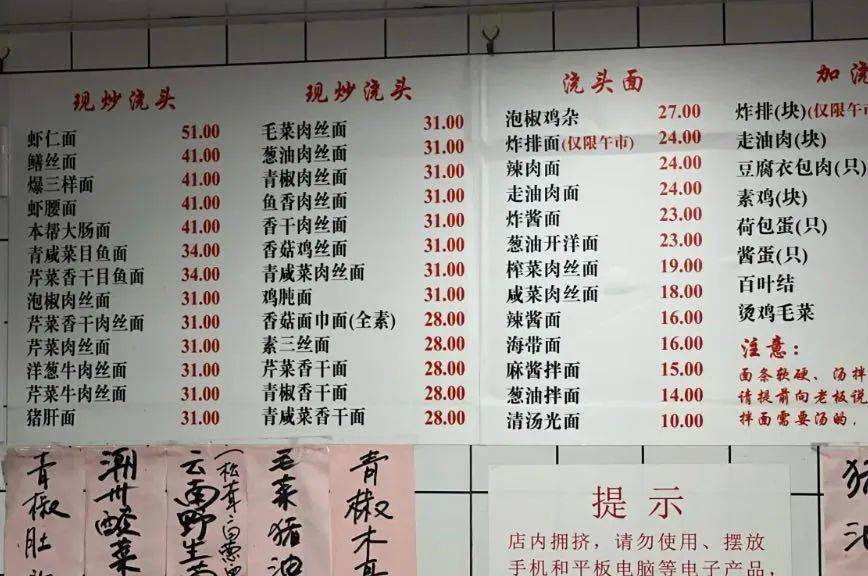 现炒浇头
虾仁面 51.00
鳝丝面 41.00
爆三样面 41.00
虾腰面 41.00
本帮大肠面 41.00
青咸菜目鱼面 34.00
芹菜香干目鱼面 34.00
泡椒肉丝面 31.00
芹菜香干肉丝面 31.00
芹菜肉丝面 31.00
洋葱牛肉丝面 31.00
芹菜牛肉丝面 31.00
猪肝面 31.00
现炒浇头
毛菜肉丝面 31.00
葱油肉丝面 31.00
青椒肉丝面 31.00
鱼香肉丝面 31.00
香干肉丝面 31.00
香菇鸡丝面 31.00
青咸菜肉丝面 31.00
鸡肫面 31.00
香菇面巾面(全素) 28.00
素三丝面 28.00
芹菜香干面 28.00
青椒香干面 28.00
青咸菜香干面 28.00
浇头面
泡椒鸡杂 27.00
炸排面(仅限午市) 24.00
辣肉面 24.00
走油肉面 24.00
炸酱面 23.00
葱油开洋面 23.00
榨菜肉丝面 19.00
咸菜肉丝面 18.00
辣酱面 16.00
海带面 16.00
麻酱拌面 15.00
葱油拌面 14.00
清汤光面 10.00
加浇
炸排(块)(仅限午市
走油肉(块)
豆腐衣包肉(只)
素鸡(块)
荷包蛋(只)
酱蛋(只)
百叶结
烫鸡毛菜
注意:
面条软硬、汤拌
请提前向老板说
拌面需要汤的,
青椒肚
潮州酸菜
云南野生
(松茸
毛菜猪油
青椒木耳
提示
店内拥挤,请勿使用、摆放
手机和平板电脑等电子产品,
猪油